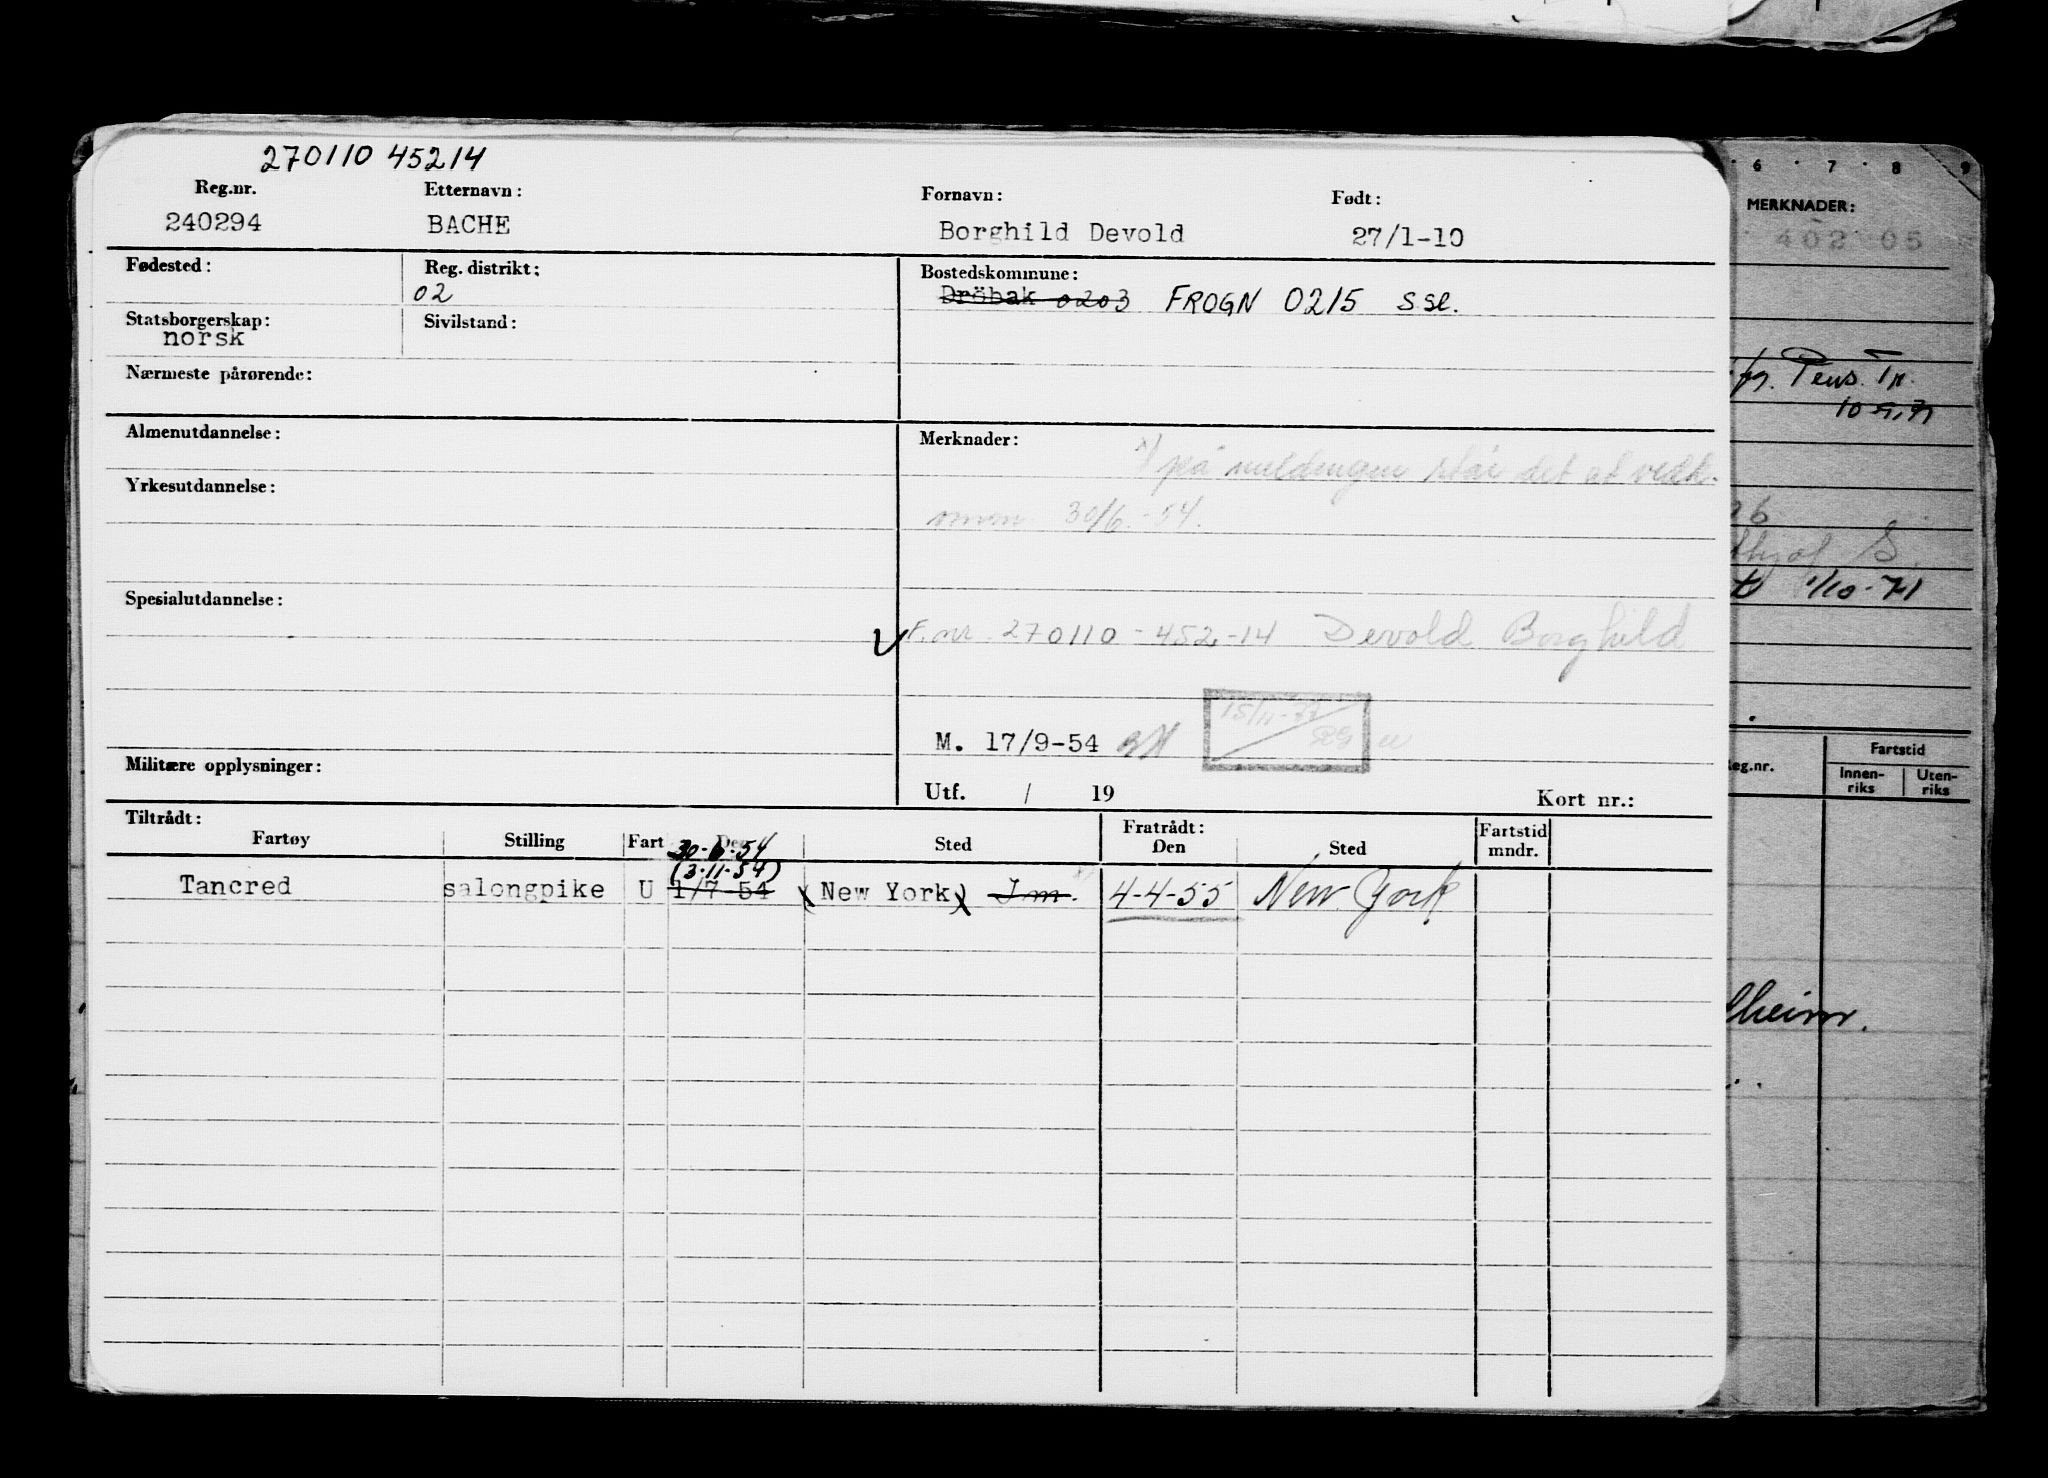 270110 45214
Reg.nr. Etternavn: Fornavn: Født:
240294 BACHE Borghild Devold 27/1-10
Fødested: Reg. distrikt: Bostedskommune:
02 Dröbak 0203 FROGN 0215 s.sl.
Statsborgerskap: Sivilstand:
norsk
Nærmeste pårørende:
Almenutdannelse: Merknader:
x) på meldingen står det at vedk.
Yrkesutdannelse:
30/6.-54.
Spesialutdannelse:
F.nr. 270110-452-14 Devold Borghild
15/11-77
M. 17/9-54
Militære opplysninger:
Utf. / 19 Kort nr.:
Tiltrådt: Fratrådt:
Fartøy Stilling Fart Den Sted Den Sted Fartstid mndr.
30-6-54
(3-11-54)
Tancred salongpike U 1/7-54 (New York) Im. x) 4-4-55 New York
6 7 8 9
MERKNADER:
402 05
Pens. Tr.
10-9-71
1/10-71
eg.nr. Fartstid
Innenriks Utenriks
lheim.